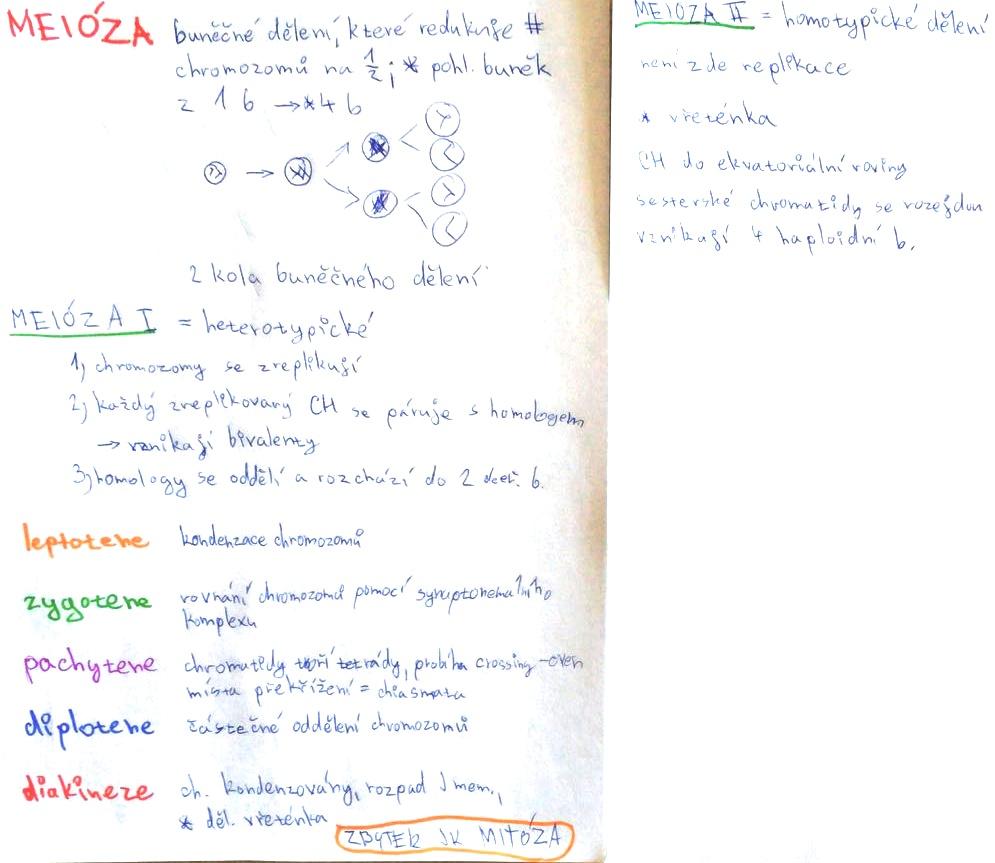 MEIÓZA buněčné dělení, které redukuje #
chromozomů na 1/2; * pohl. buněk
z 1 b → * 4 b
2 kola buněčného dělení
MEIÓZA I = heterotypické
1) chromozomy se zreplikují
2) každý zreplikovaný CH se páruje s homologem
→ vznikají bivalenty
3) homology se oddělí a rozchází do 2 dceř. b.
leptotene kondenzace chromozomů
zygotene rovnání chromozomů pomocí synaptonemálního
komplexu
pachytene chromatidy tvoří tetrády, probíhá crossing-over
místa překřížení = chiasmata
diplotene částečné oddělení chromozomů
diakineze ch. kondenzovány, rozpad J mem.,
* děl. vřeténka
ZBYTEK JK MITÓZA
MEIÓZA II = homotypické dělení
není zde replikace
* vřeténka
CH do ekvatoriální roviny
sesterské chromatidy se rozejdou
vznikají 4 haploidní b.